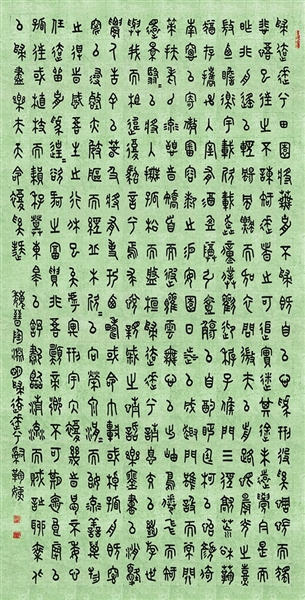 歸去來兮田園將蕪胡不歸既自以心為形役奚惆悵而獨
悲悟已往之不諫知來者之可追實迷途其未遠覺今是而
昨非舟遙遙以輕颺風飄飄而吹衣問征夫以前路恨晨光之熹
微乃瞻衡宇載欣載奔僮僕歡迎稚子候門三徑就荒松菊
猶存攜幼入室有酒盈樽引壺觴以自酌眄庭柯以怡顏倚
南窗以寄傲審容膝之易安園日涉以成趣門雖設而常關
策扶老以流憩時矯首而遐觀雲無心以出岫鳥倦飛而知
還景翳翳以將入撫孤松而盤桓歸去來兮請息交以絕遊世
與我而相違復駕言兮焉求悅親戚之情話樂琴書以消
憂農人告余以春及將有事於西疇或命巾車或棹孤舟既
窈窕以尋壑亦崎嶇而經丘木欣欣以向榮泉涓涓而始流善萬物
之得時感吾生之行休已矣乎寓形宇內復幾時曷不委心
任去留胡為乎遑遑欲何之富貴非吾願帝鄉不可期懷良辰以
孤往或植杖而耘耔登東皋以舒嘯臨清流而賦詩聊乘化
以歸盡樂夫天命復奚疑
魏晉陶淵明歸去來兮辭